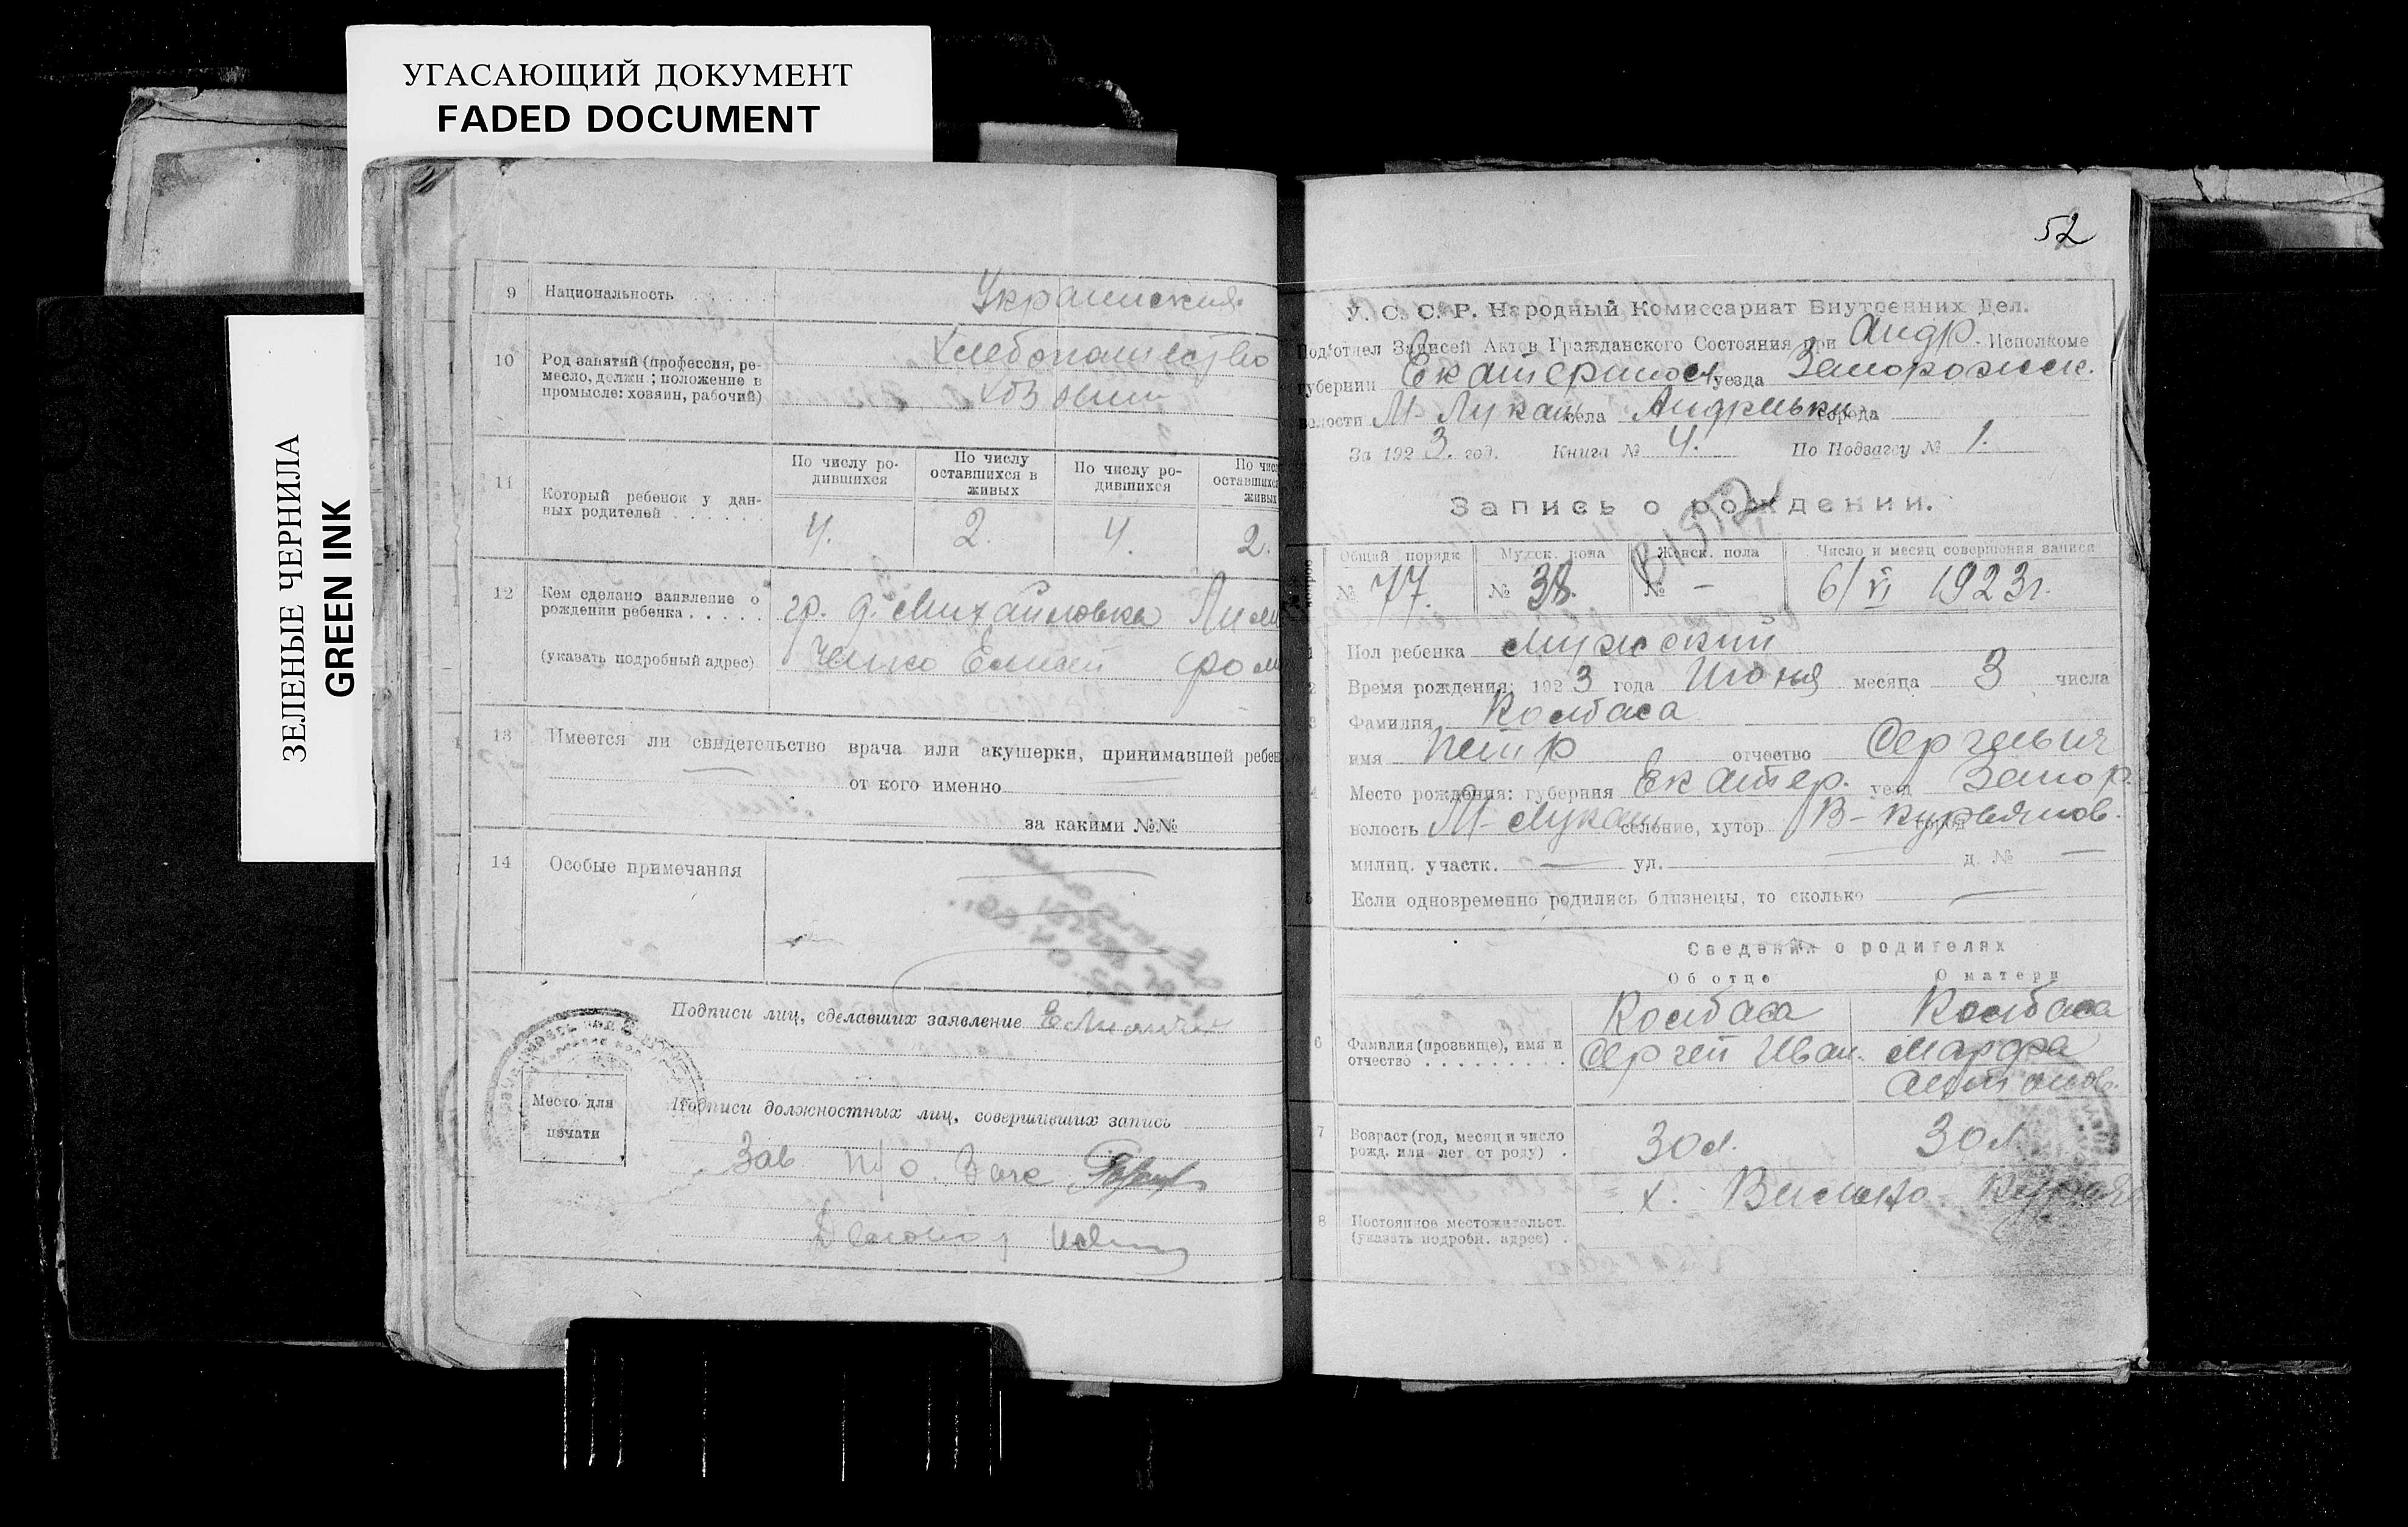 УГАСАЮЩИЙ ДОКУМЕНТ
FADED DOCUMENT
ЗЕЛЕНЫЕ ЧЕРНИЛА
GREEN INK
9 Национальность Украинская
10 Род занятий (профессия, ре-
месло, должн; положение в
промысле: хозяин, рабочий)
Хлебопашество
хозяин
11 Который ребенок у дан-
ных родителей
По числу ро-
дившихся
По числу
оставшихся в
живых
По числу ро-
дившихся
По чис
оставшихс
живых
4. 2. 4. 2.
12 Кем сделано заявление о
рождении ребенка
(указать подробный адрес)
гр. д. Михайловка
13 Имеется ли свидетельство врача или акушерки, принимавшей ребен
от кого именно
за какими №№
14 Особые примечания
Подписи лиц, сделавших заявление
Место для
печати
Подписи должностных лиц, совершивших запись
Зав п/о Загс
52
У. С. С. Р. Народный Комиссариат Внутренних Дел.
Под'отдел Записей Актов Гражданского Состояния при Андр. Исполкоме
губернии Екатеринос уезда Запорожск.
волости М-Лукаш села Андреевки города
За 1923. год. Книга № 4. По Подзагсу № 1.
Запись о рождении.
Общий порядк Мужск. пола Женск. пола Число и месяц совершения записи
№ 77. № 38. № — 6/VI 1923г.
1 Пол ребенка Мужской
2 Время рождения: 1923 года Июня месяца 3 числа
3 Фамилия Колбаса
имя Петр отчество Сергеевич
4 Место рождения: губерния Екатер. уезд Запор.
волость М-Лукаш селение, хутор В-Курьянов. город
милиц. участк. — ул. — д. № —
5 Если одновременно родились близнецы, то сколько —
Сведения о родителях
Об отце О матери
6 Фамилия (прозвище), имя и
отчество
Колбаса
Сергей Иван.
Колбаса
Марфа
Антонов.
7 Возраст (год, месяц и число
рожд. или лет от роду)
30л. 30л.
8 Постоянное местожительст.
(указать подробн. адрес)
х.